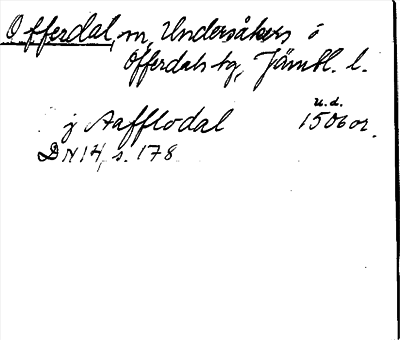 Offerdal, m, Undersåkers o
Offerdals tg, Jämtl. l.
u.d.
j Aafflodal 1506 or.
DN 14, s. 178